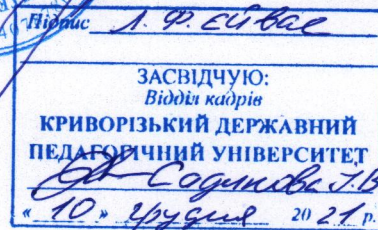 Підпис Л. Ф. Єйвас
ЗАСВІДЧУЮ:
Відділ кадрів
КРИВОРІЗЬКИЙ ДЕРЖАВНИЙ
ПЕДАГОГІЧНИЙ УНІВЕРСИТЕТ
Садикова І.В
« 10 » грудня 2021 р.